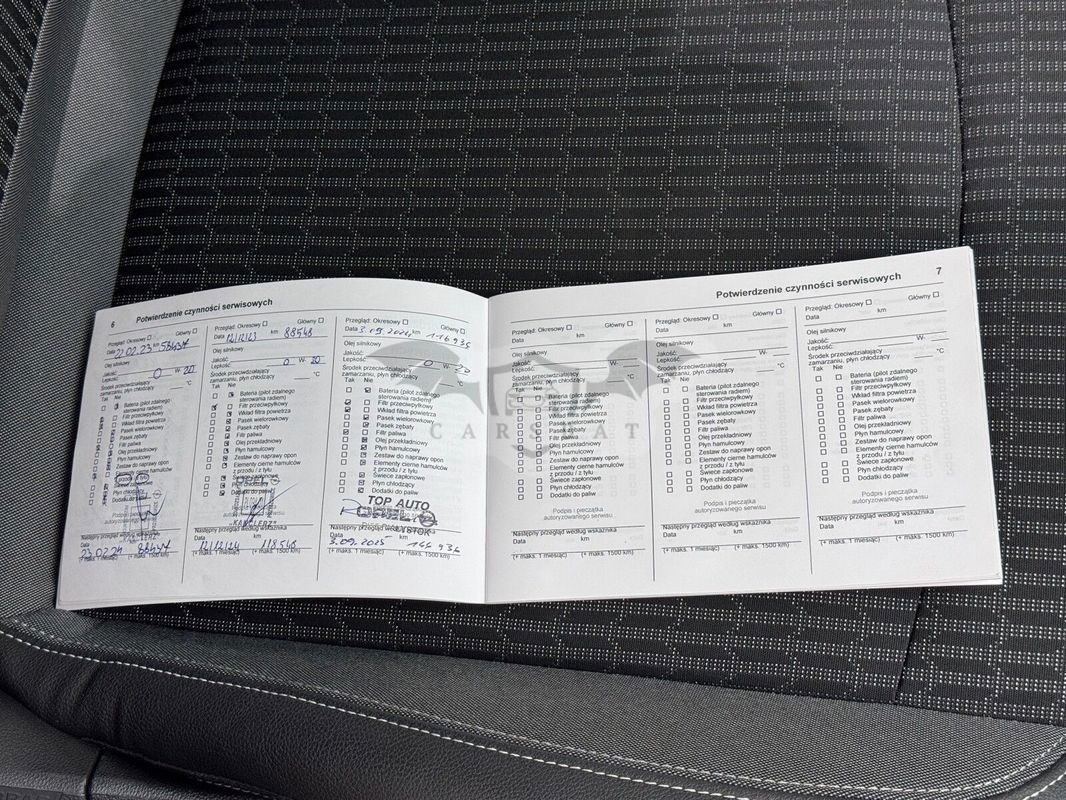 6 Potwierdzenie czynności serwisowych
Przegląd: Okresowy Główny
Data 22.02.23 km 58437
Olej silnikowy
Jakość:
Lepkość: 0 W- 20
Środek przeciwdziałający
zamarzaniu, płyn chłodzący °C
Tak Nie
Bateria (pilot zdalnego
sterowania radiem)
Filtr przeciwpyłkowy
Wkład filtra powietrza
Pasek wielorowkowy
Pasek zębaty
Filtr paliwa
Olej przekładniowy
Płyn hamulcowy
Zestaw do naprawy opon
Elementy cierne hamulców
z przodu / z tyłu
Świece zapłonowe
Płyn chłodzący
Dodatki do paliw
Następny przegląd według wskaźnika
Data km
23.02.24 88437
(+ maks. 1 miesiąc) (+ maks. 1500 km)
Przegląd: Okresowy Główny
Data 12/12/23 km 88548
Olej silnikowy
Jakość:
Lepkość: 0 W- 20
Środek przeciwdziałający
zamarzaniu, płyn chłodzący °C
Tak Nie
Bateria (pilot zdalnego
sterowania radiem)
Filtr przeciwpyłkowy
Wkład filtra powietrza
Pasek wielorowkowy
Pasek zębaty
Filtr paliwa
Olej przekładniowy
Płyn hamulcowy
Zestaw do naprawy opon
Elementy cierne hamulców
z przodu / z tyłu
Świece zapłonowe
Płyn chłodzący
Dodatki do paliw
Następny przegląd według wskaźnika
Data km
12/12/24 118548
(+ maks. 1 miesiąc) (+ maks. 1500 km)
Przegląd: Okresowy Główny
Data 3.09.2024 km 116936
Olej silnikowy
Jakość:
Lepkość: 0 W- 20
Środek przeciwdziałający
zamarzaniu, płyn chłodzący °C
Tak Nie
Bateria (pilot zdalnego
sterowania radiem)
Filtr przeciwpyłkowy
Wkład filtra powietrza
Pasek wielorowkowy
Pasek zębaty
Filtr paliwa
Olej przekładniowy
Płyn hamulcowy
Zestaw do naprawy opon
Elementy cierne hamulców
z przodu / z tyłu
Świece zapłonowe
Płyn chłodzący
Dodatki do paliw
TOP AUTO
OPEL
Następny przegląd według wskaźnika
Data km
3.09.2025 146 936
(+ maks. 1 miesiąc) (+ maks. 1500 km)
Potwierdzenie czynności serwisowych 7
Przegląd: Okresowy Główny
Data km
Olej silnikowy
Jakość:
Lepkość: W-
Środek przeciwdziałający
zamarzaniu, płyn chłodzący °C
Tak Nie
Bateria (pilot zdalnego
sterowania radiem)
Filtr przeciwpyłkowy
Wkład filtra powietrza
Pasek wielorowkowy
Pasek zębaty
Filtr paliwa
Olej przekładniowy
Płyn hamulcowy
Zestaw do naprawy opon
Elementy cierne hamulców
z przodu / z tyłu
Świece zapłonowe
Płyn chłodzący
Dodatki do paliw
Podpis i pieczątka
autoryzowanego serwisu
Następny przegląd według wskaźnika
Data km
(+ maks. 1 miesiąc) (+ maks. 1500 km)
Przegląd: Okresowy Główny
Data km
Olej silnikowy
Jakość:
Lepkość: W-
Środek przeciwdziałający
zamarzaniu, płyn chłodzący °C
Tak Nie
Bateria (pilot zdalnego
sterowania radiem)
Filtr przeciwpyłkowy
Wkład filtra powietrza
Pasek wielorowkowy
Pasek zębaty
Filtr paliwa
Olej przekładniowy
Płyn hamulcowy
Zestaw do naprawy opon
Elementy cierne hamulców
z przodu / z tyłu
Świece zapłonowe
Płyn chłodzący
Dodatki do paliw
Podpis i pieczątka
autoryzowanego serwisu
Następny przegląd według wskaźnika
Data km
(+ maks. 1 miesiąc) (+ maks. 1500 km)
Przegląd: Okresowy Główny
Data km
Olej silnikowy
Jakość:
Lepkość: W-
Środek przeciwdziałający
zamarzaniu, płyn chłodzący °C
Tak Nie
Bateria (pilot zdalnego
sterowania radiem)
Filtr przeciwpyłkowy
Wkład filtra powietrza
Pasek wielorowkowy
Pasek zębaty
Filtr paliwa
Olej przekładniowy
Płyn hamulcowy
Zestaw do naprawy opon
Elementy cierne hamulców
z przodu / z tyłu
Świece zapłonowe
Płyn chłodzący
Dodatki do paliw
Podpis i pieczątka
autoryzowanego serwisu
Następny przegląd według wskaźnika
Data km
(+ maks. 1 miesiąc) (+ maks. 1500 km)